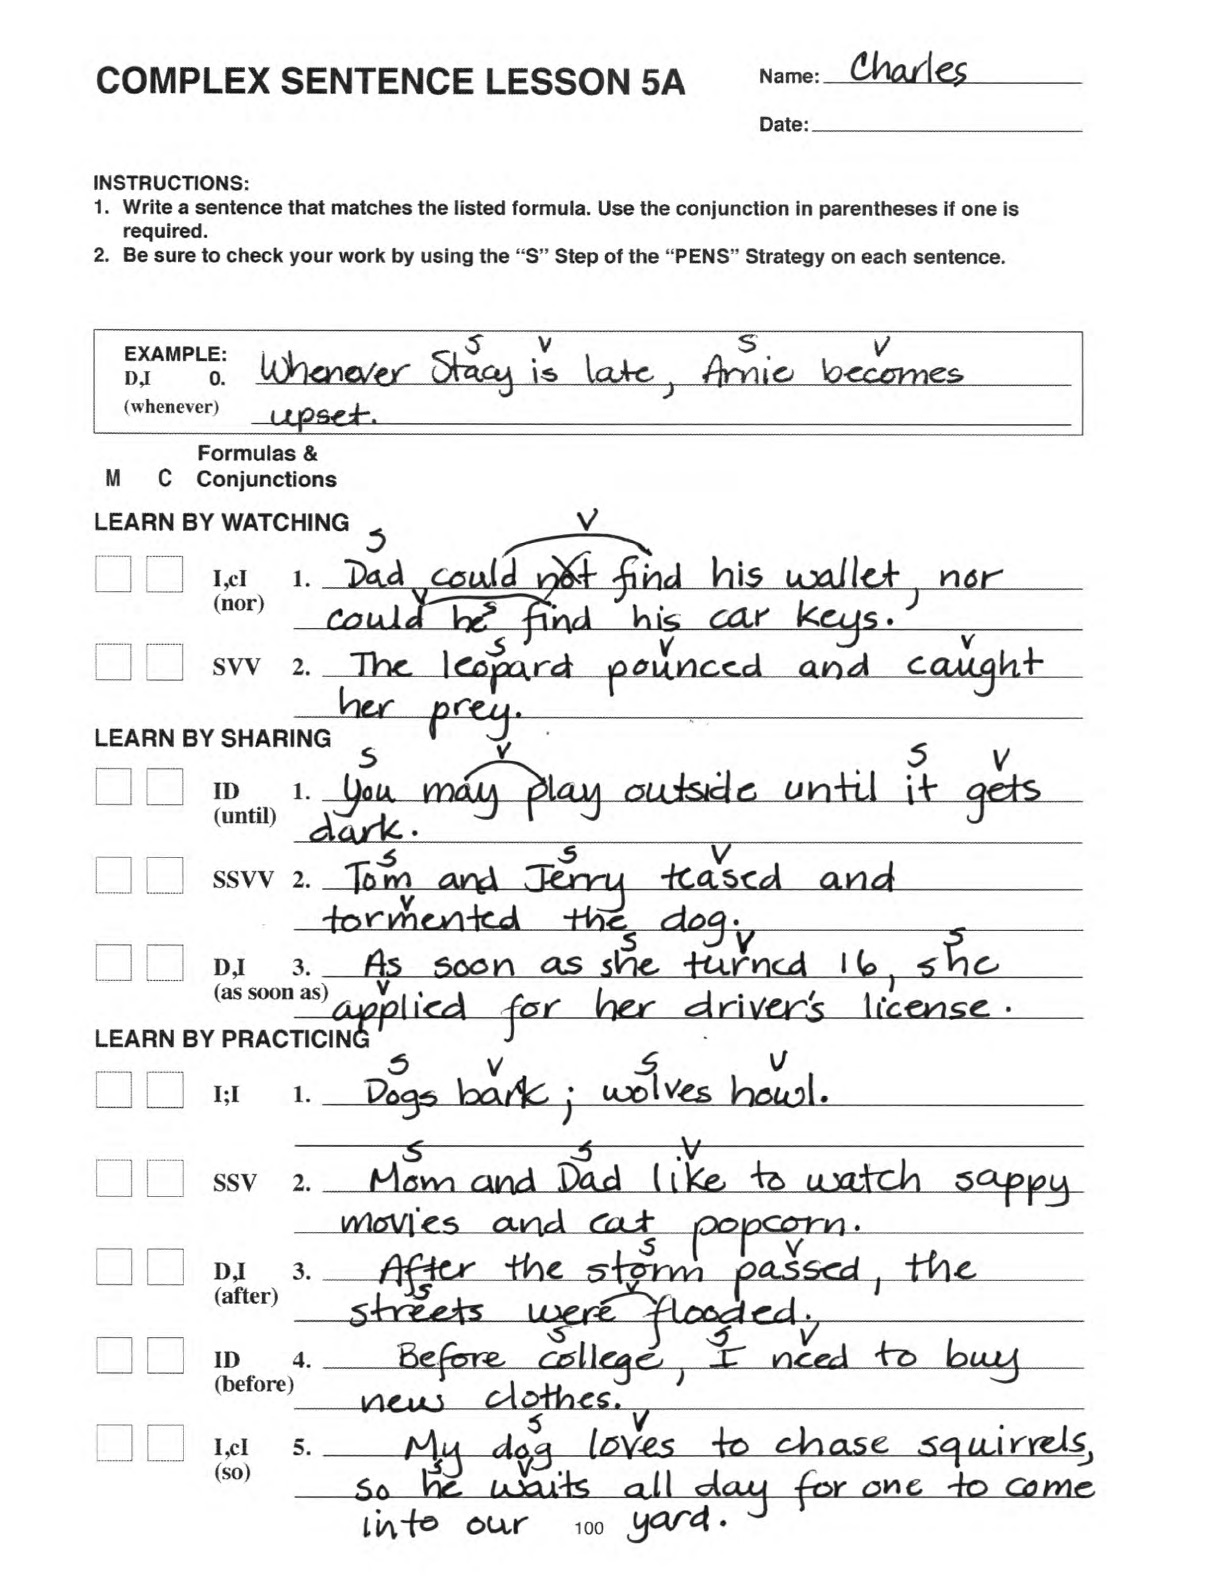 COMPLEX SENTENCE LESSON 5A
Name: Charles
Date:
INSTRUCTIONS:
1. Write a sentence that matches the listed formula. Use the conjunction in parentheses if one is
required.
2. Be sure to check your work by using the “S” Step of the “PENS” Strategy on each sentence.
S V S V
EXAMPLE:
D,I 0. Whenever Stacy is late, Arnie becomes
(whenever) upset.
Formulas &
M C Conjunctions
LEARN BY WATCHING
S V
I,cI 1. Dad could not find his wallet, nor
(nor)
V S
could he find his car keys.
S V V
SVV 2. The leopard pounced and caught
her prey.
LEARN BY SHARING
S V S V
ID 1. You may play outside until it gets
(until)
dark.
S S V
SSVV 2. Tom and Jerry teased and
V
tormented the dog.
S V S
D,I 3. As soon as she turned 16, she
(as soon as)
V
applied for her driver's license.
LEARN BY PRACTICING
S V S V
I;I 1. Dogs bark; wolves howl.
S S V
SSV 2. Mom and Dad like to watch sappy
movies and eat popcorn.
S V
D,I 3. After the storm passed, the
(after)
S V
streets were flooded.
S S V
ID 4. Before college, I need to buy
(before)
new clothes.
S V
I,cI 5. My dog loves to chase squirrels,
(so)
S V
so he waits all day for one to come
into our yard.
100